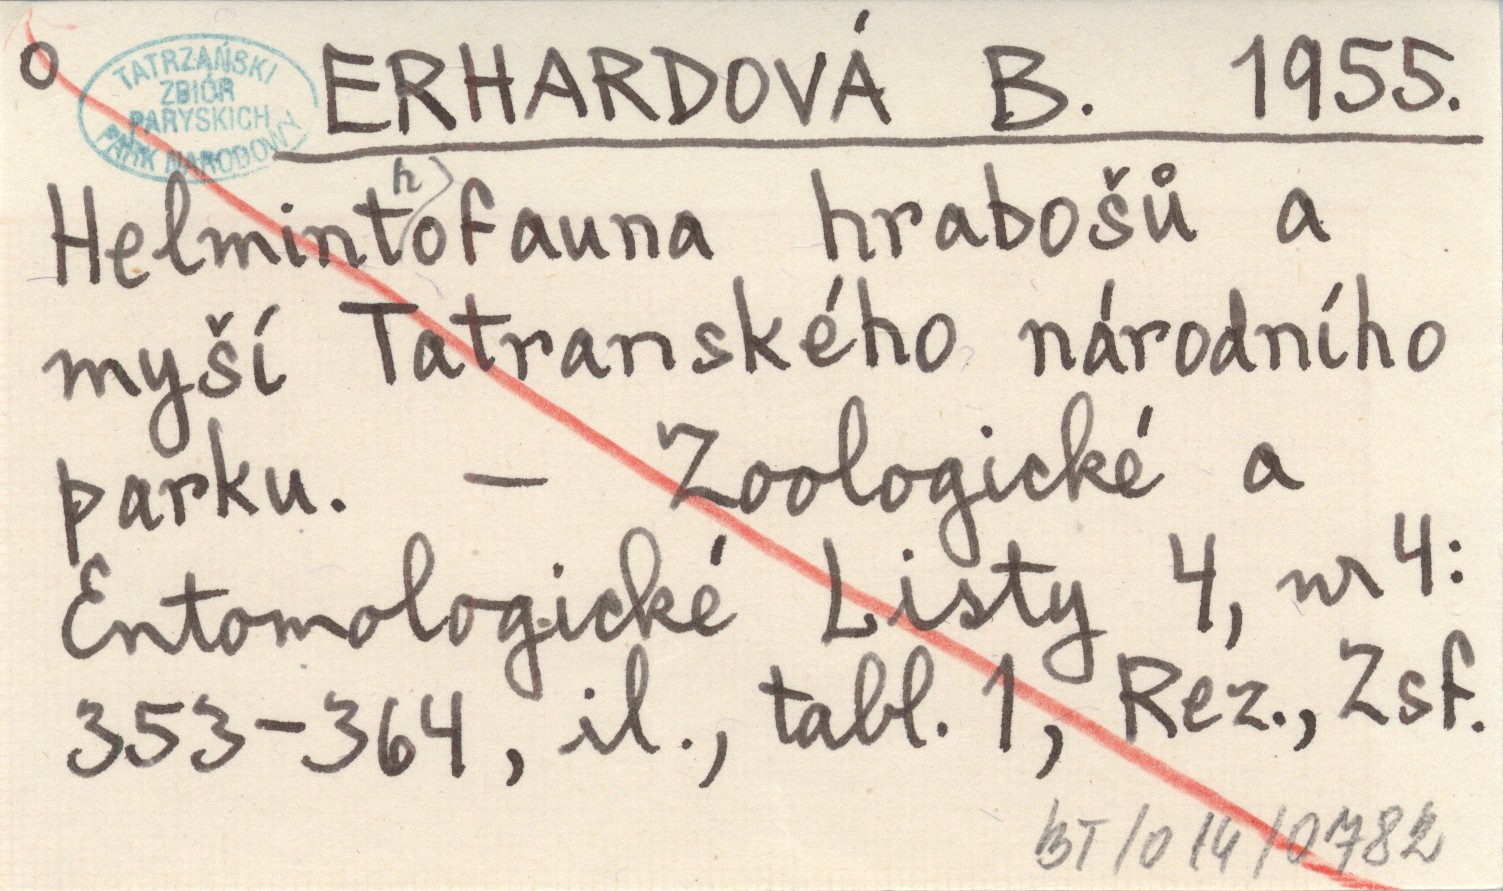 o
TATRZAŃSKI
ZBIÓR
PARYSKICH
PARK NARODOWY
ERHARDOVÁ B. 1955.
h
Helmintofauna hrabošů a
myší Tatranského národního
parku. — Zoologické a
Entomologické Listy 4, nr 4:
353-364, il., tabl. 1, Rez., Zsf.
BT/014/0782